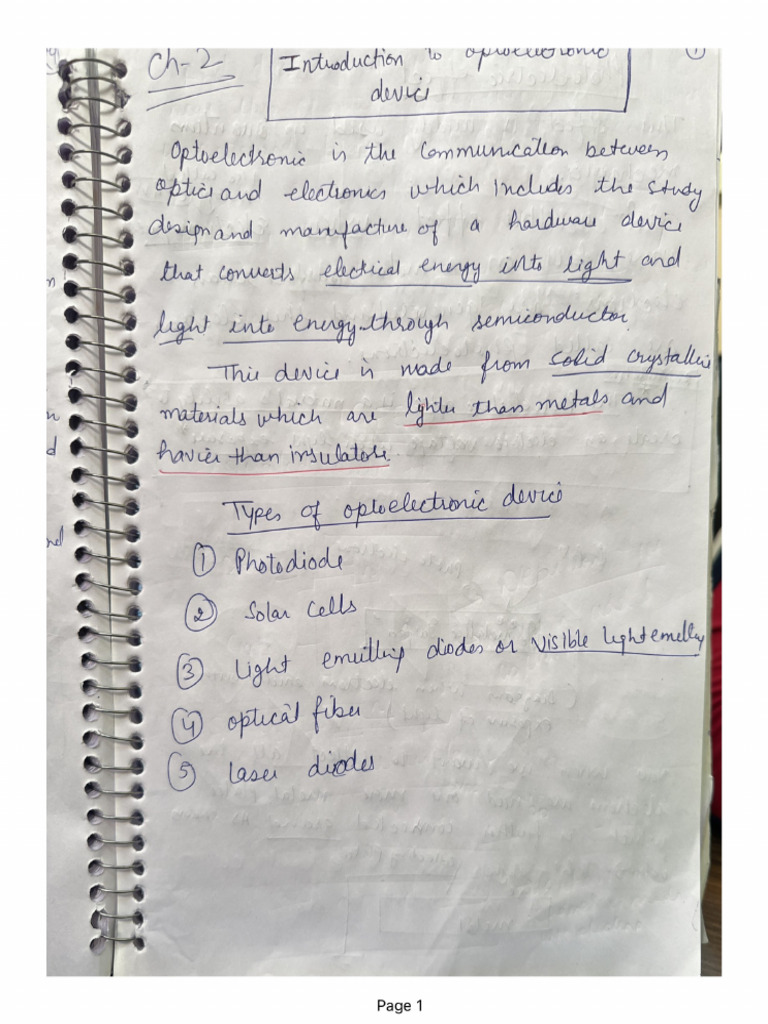 Ch-2
Introduction to optoelectronic
device
①
Optoelectronic is the communication between
optics and electronics which includes the study
design and manufacture of a hardware device
that converts electical energy into light and
light into energy through semiconductor.
This device is made from solid crystallie
materials which are lighter than metals and
havier than insulators.
Types of optoelectronic device
① Photodiode
② Solar Cells
③ Light emitting diodes or visible light emitting
④ optical fiber
⑤ laser diodes
Page 1